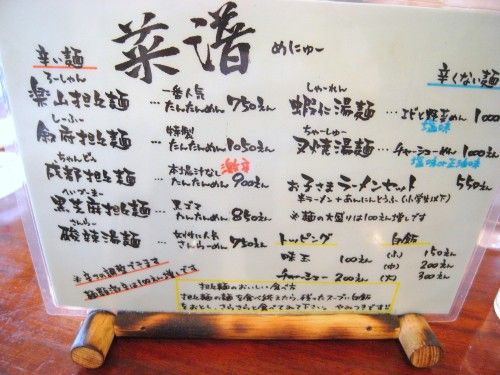 菜譜 めにゅー
辛い麺
ろーしゃん
楽山担々麺 … 一番人気 たんたんめん 750えん
しーふー
師府担々麺 … 特製 たんたんめん 1050えん
ちゃんどぅ
成都担々麺 … 本場汁なし 激辛 たんたんめん 900えん
へいづーまー
黒芝麻担々麺 … 黒ゴマ たんたんめん 850えん
さんらー
酸辣湯麺 … 女性に人気 さんらーめん 750えん
※辛さの調整できます
麺大盛は100えん増しです
辛くない麺
しゃーれん
蝦仁湯麺 … エビと野菜めん 1000
塩味
ちゃーしゅー
叉焼湯麺 … チャーシューめん 1000
塩味か正油味
お子さまラーメンセット 550えん
半ラーメンとあんにんどうふ(小学生以下)
※麺の大盛りは100えん増しです
トッピング
味玉 100えん
チャーシュー 200えん
白飯
(小) 150えん
(中) 200えん
(大) 300えん
担々麺のおいしい食べ方
担々麺の麺を食べ終えたら、残ったスープに白飯
をおとし、さらさらと食べてみて下さい。やみつきです!!